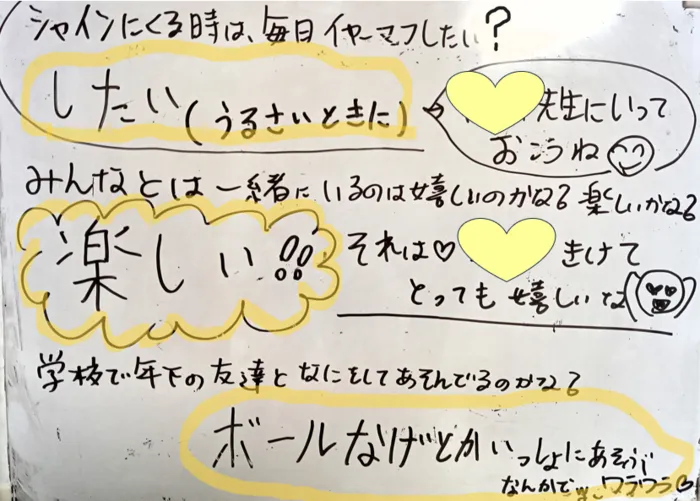 シャインにくる時は、毎日イヤーマフしたい?
したい(うるさいときに)
先生にいって
おこうね
みんなとは一緒にいるのは嬉しいのかな?楽しいかな?
楽しい!!
それは♡ きけて
とっても嬉しいな
学校で年下の友達となにをしてあそんでるのかな?
ボールなげとかいっしょにあそぶ
なんかでw ワラワラ